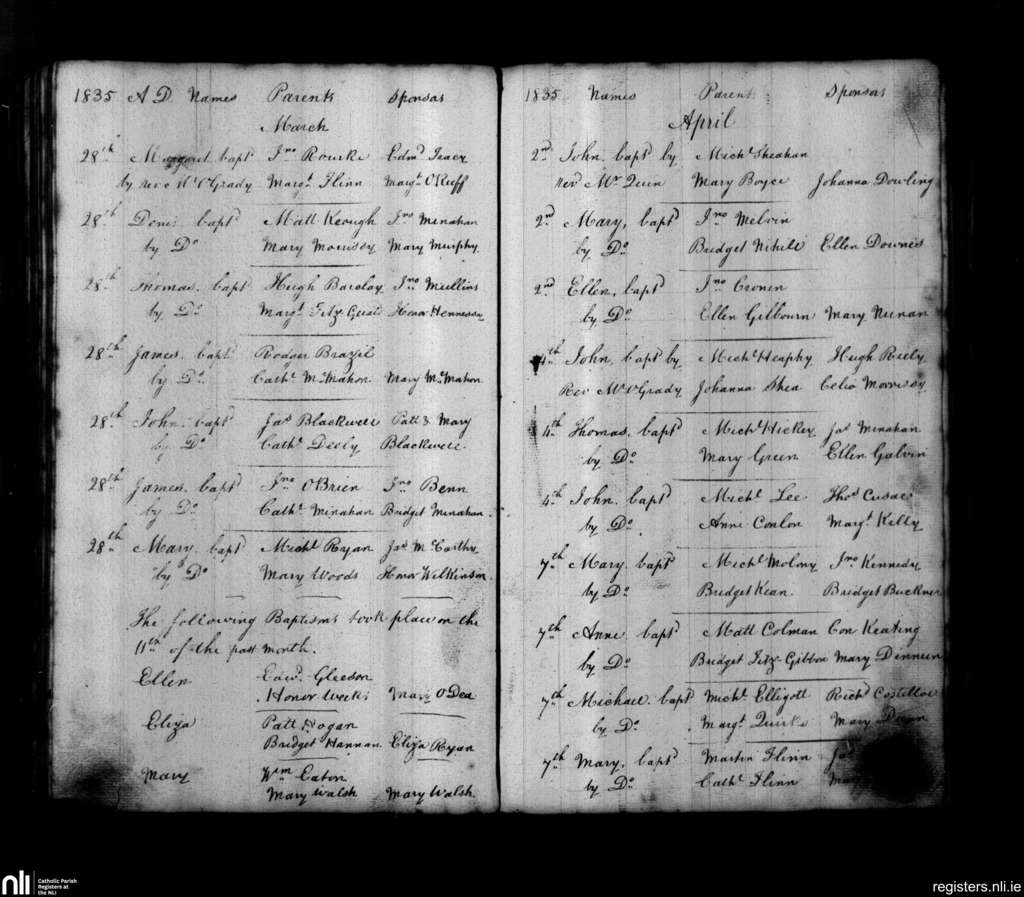 1835 A D. Names Parents Sponsors
March
28th Margaret bapt Jno Rourke Edmd Tracy
by Revd Mr O'Grady Margt Flinn Margt O'Keeff
28th Denis bapt Matt Keough Jno Minahan
by Do Mary Morrissy Mary Murphy
28th Thomas. bapt Hugh Barclay Jno Mullins
by Do Margt Fitz Gerald Honor Hennessy
28th James. bapt Rodger Brazil
by Do. Cathe McMahon Mary McMahon
28th John. bapt Jas Blackwell Patt & Mary
by Do Cathe Deely Blackwell
28th James. bapt Jno O'Brien Jno Benn
by Do Cathe Minahan Bridget Minahan.
28th Mary. bapt Michl Ryan Jas McCarthy
by Do Mary Woods Honor Wilkinson.
The following Baptisms took place on the
11th of the past month.
Ellen Edwd. Gleeson
Honor Weeks Mary O'Dea
Eliza Patt Hogan
Bridget Hannan. Eliza Ryan
Mary Wm Eaton
Mary Walsh Mary Walsh.
1835 Names Parents Sponsors
April
2nd John. bapt by Michl Sheahan
Revd Mr Quin Mary Boyce Johanna Dowling
2nd Mary, baptd Jno Melvin
by Do Bridget Nihill Ellen Downes
2nd Ellen, baptd Jno Cronin
by Do. Ellen Gilbourn Mary Nunan
4th John, bapt by Michl Heaphy Hugh Riely
Rev Mr O'Grady Johanna Shea Celia Morrissy
4th Thomas. baptd Michl Hickey Jas Minahan
by Do Mary Green Ellen Galvin
4th John. baptd Michl Lee Thos Cusac
by Do. Anne Conlon Margt Kelly
7th Mary. baptd Michl Molony Jno Kennedy
by Do. Bridget Kean. Bridget Buckner
7th Anne. baptd Matt Colman Con Keating
by Do. Bridget Fitz-Gibbon Mary Dinneen
7th Michael. bapt Michl Elligott Richd Costelloe
by Do. Margt Quirke Mary
7th Mary, baptd Martin Flinn Jas
by Do. Cathe Flinn
nli Catholic Parish
Registers at
the NLI
registers.nli.ie